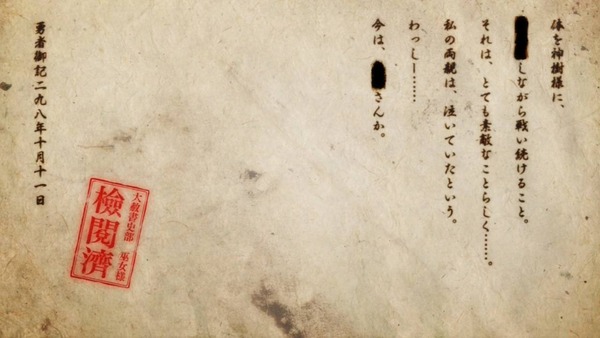 体を神樹様に、
しながら戦い続けること。
それは、とても素敵なことらしく……。
私の両親は、泣いていたという。
わっしー……
今は、
さんか。
勇者御記二九八年十月十一日
大赦書史部
巫女様
検閲済